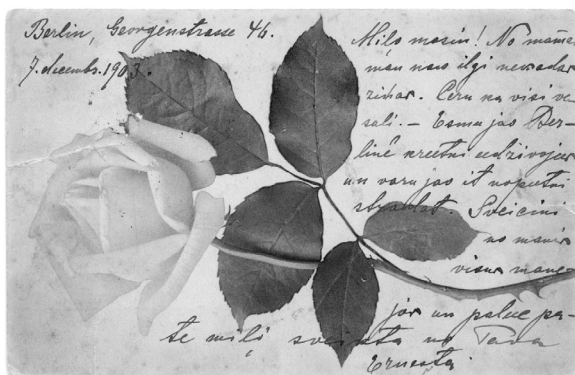 Berlin, Georgenstrasse 46.
7. decembr. 1903.
Milo masiņ! No mames
man nav ilgi nevadar
zidar. Ceru ka visi ve
seli. – Esmu jao Ber-
linē krietni eedzivojies
un varu jao it nopietni
strādāt. Sveicini
no manis
visus manē
jos un paliec pa-
te mīļi sveikta no Tava
Ernesta.